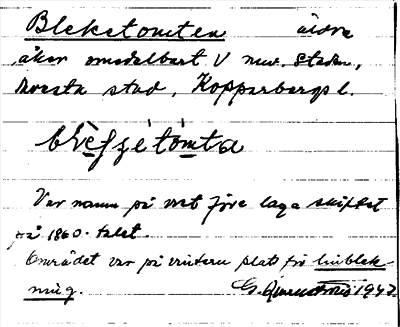 Bleketomten äldre
åker omedelbart V nuv. staden,
Avesta stad, Kopparbergs l.
Var namn på vret före laga skiftet
på 1860-talet.
Området var på vintern plats för linblek
ning. G. 1947